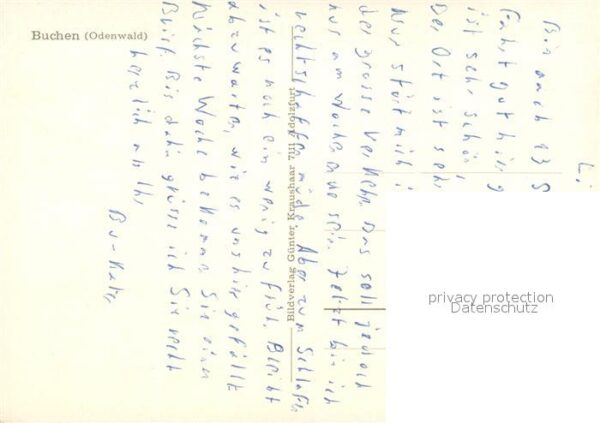 Buchen (Odenwald)
Bildverlag Günter Kraushaar 7111 Adolzfurt
L.
Bin nach
Fahrt gut hier
ist sehr schön,
Der Ort ist sehr
Nur stört mich
der grosse Verkehr. Das soll jedoch
nur am Wochenende sein. Jetzt bin ich
rechtschaffen müde. Aber zum Schlafen
ist es noch ein wenig zu früh. Bleibt
abzuwarten, wie es uns hier gefällt
Nächste Woche bekommen Sie einen
Brief. Bis dahin grüsse ich Sie recht
herzlich als Ihr
privacy protection
Datenschutz